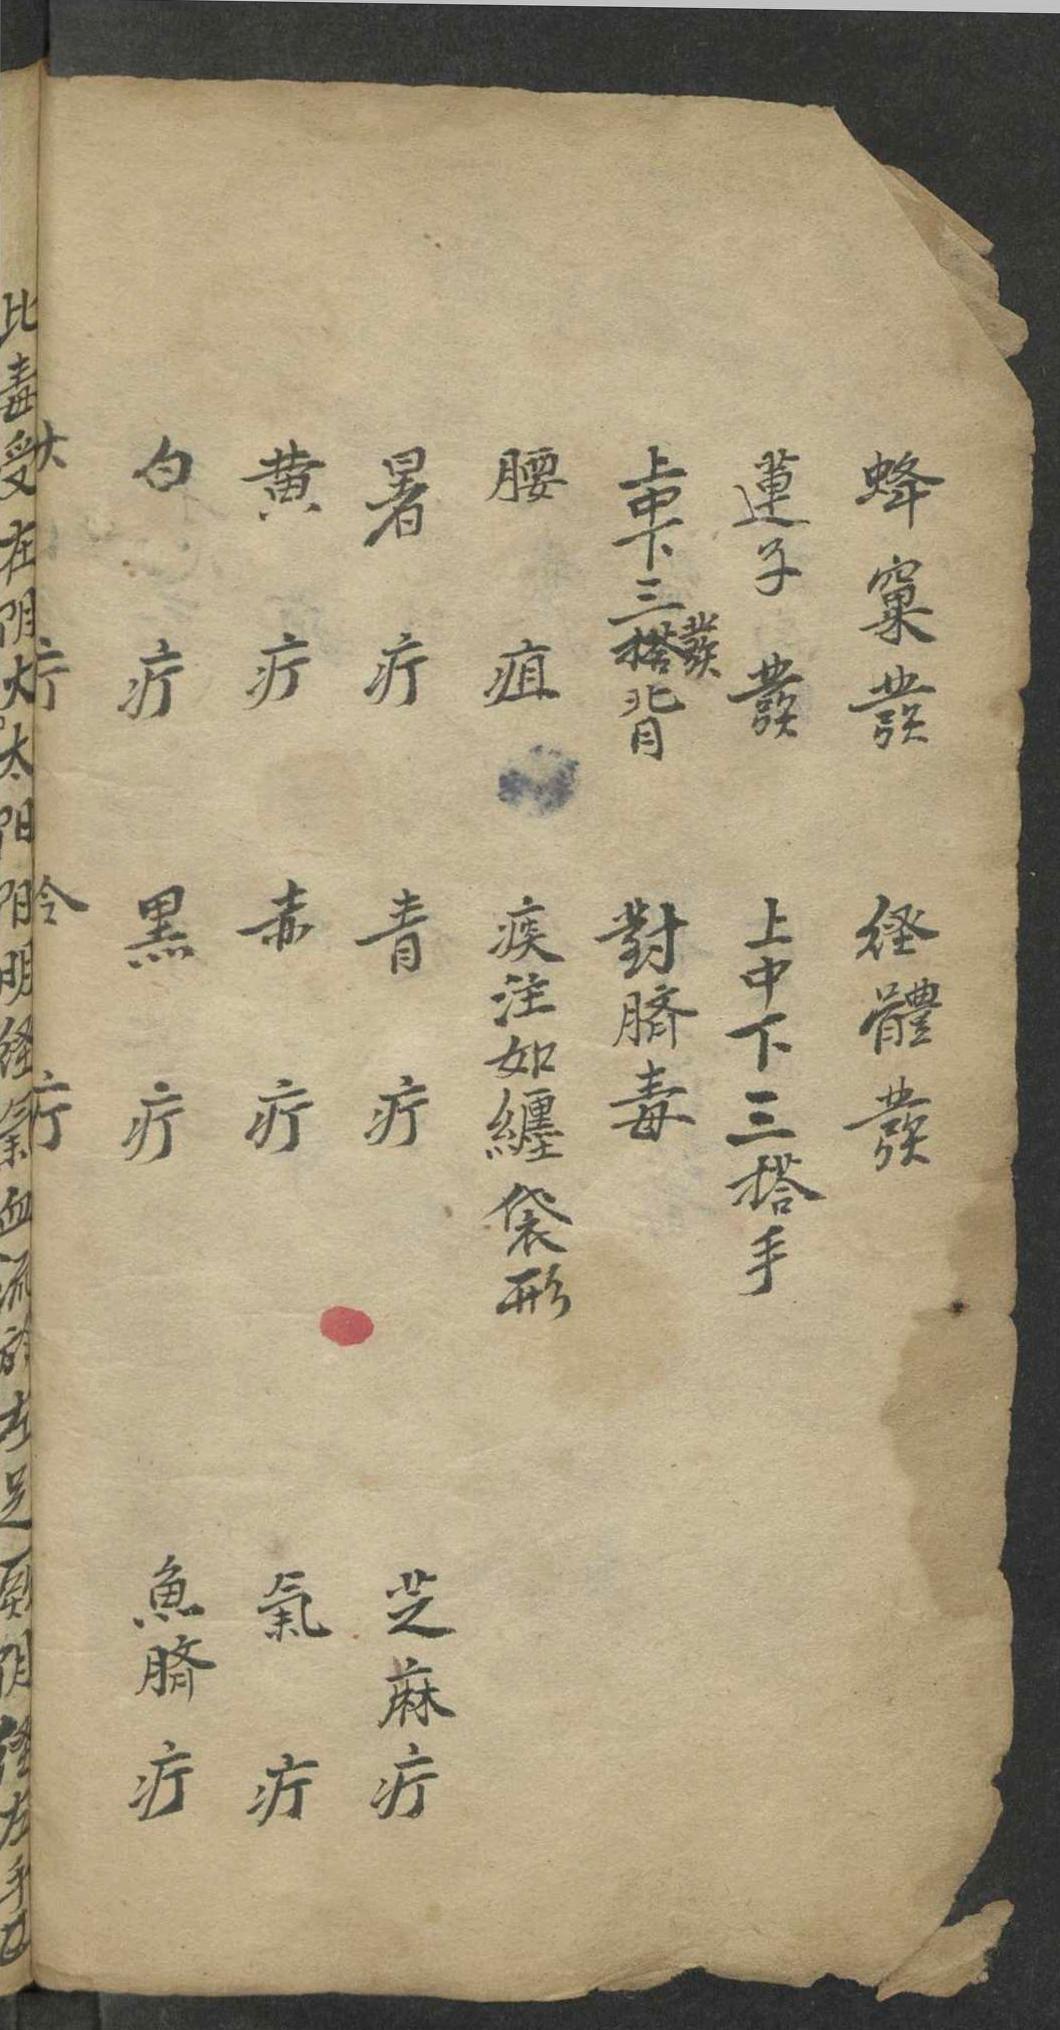 蜂窠發　経體發
蓮子發　上中下三搭手
上中下三搭背發　對臍毒
腰疽　痰注如纏袋形
暑疔　青疔　芝麻疔
黄疔　赤疔　氣疔
白疔　黑疔　魚臍疔
疔　疔
比毒受在阴大太阳阳明経氣血流於左足厥阴経左手